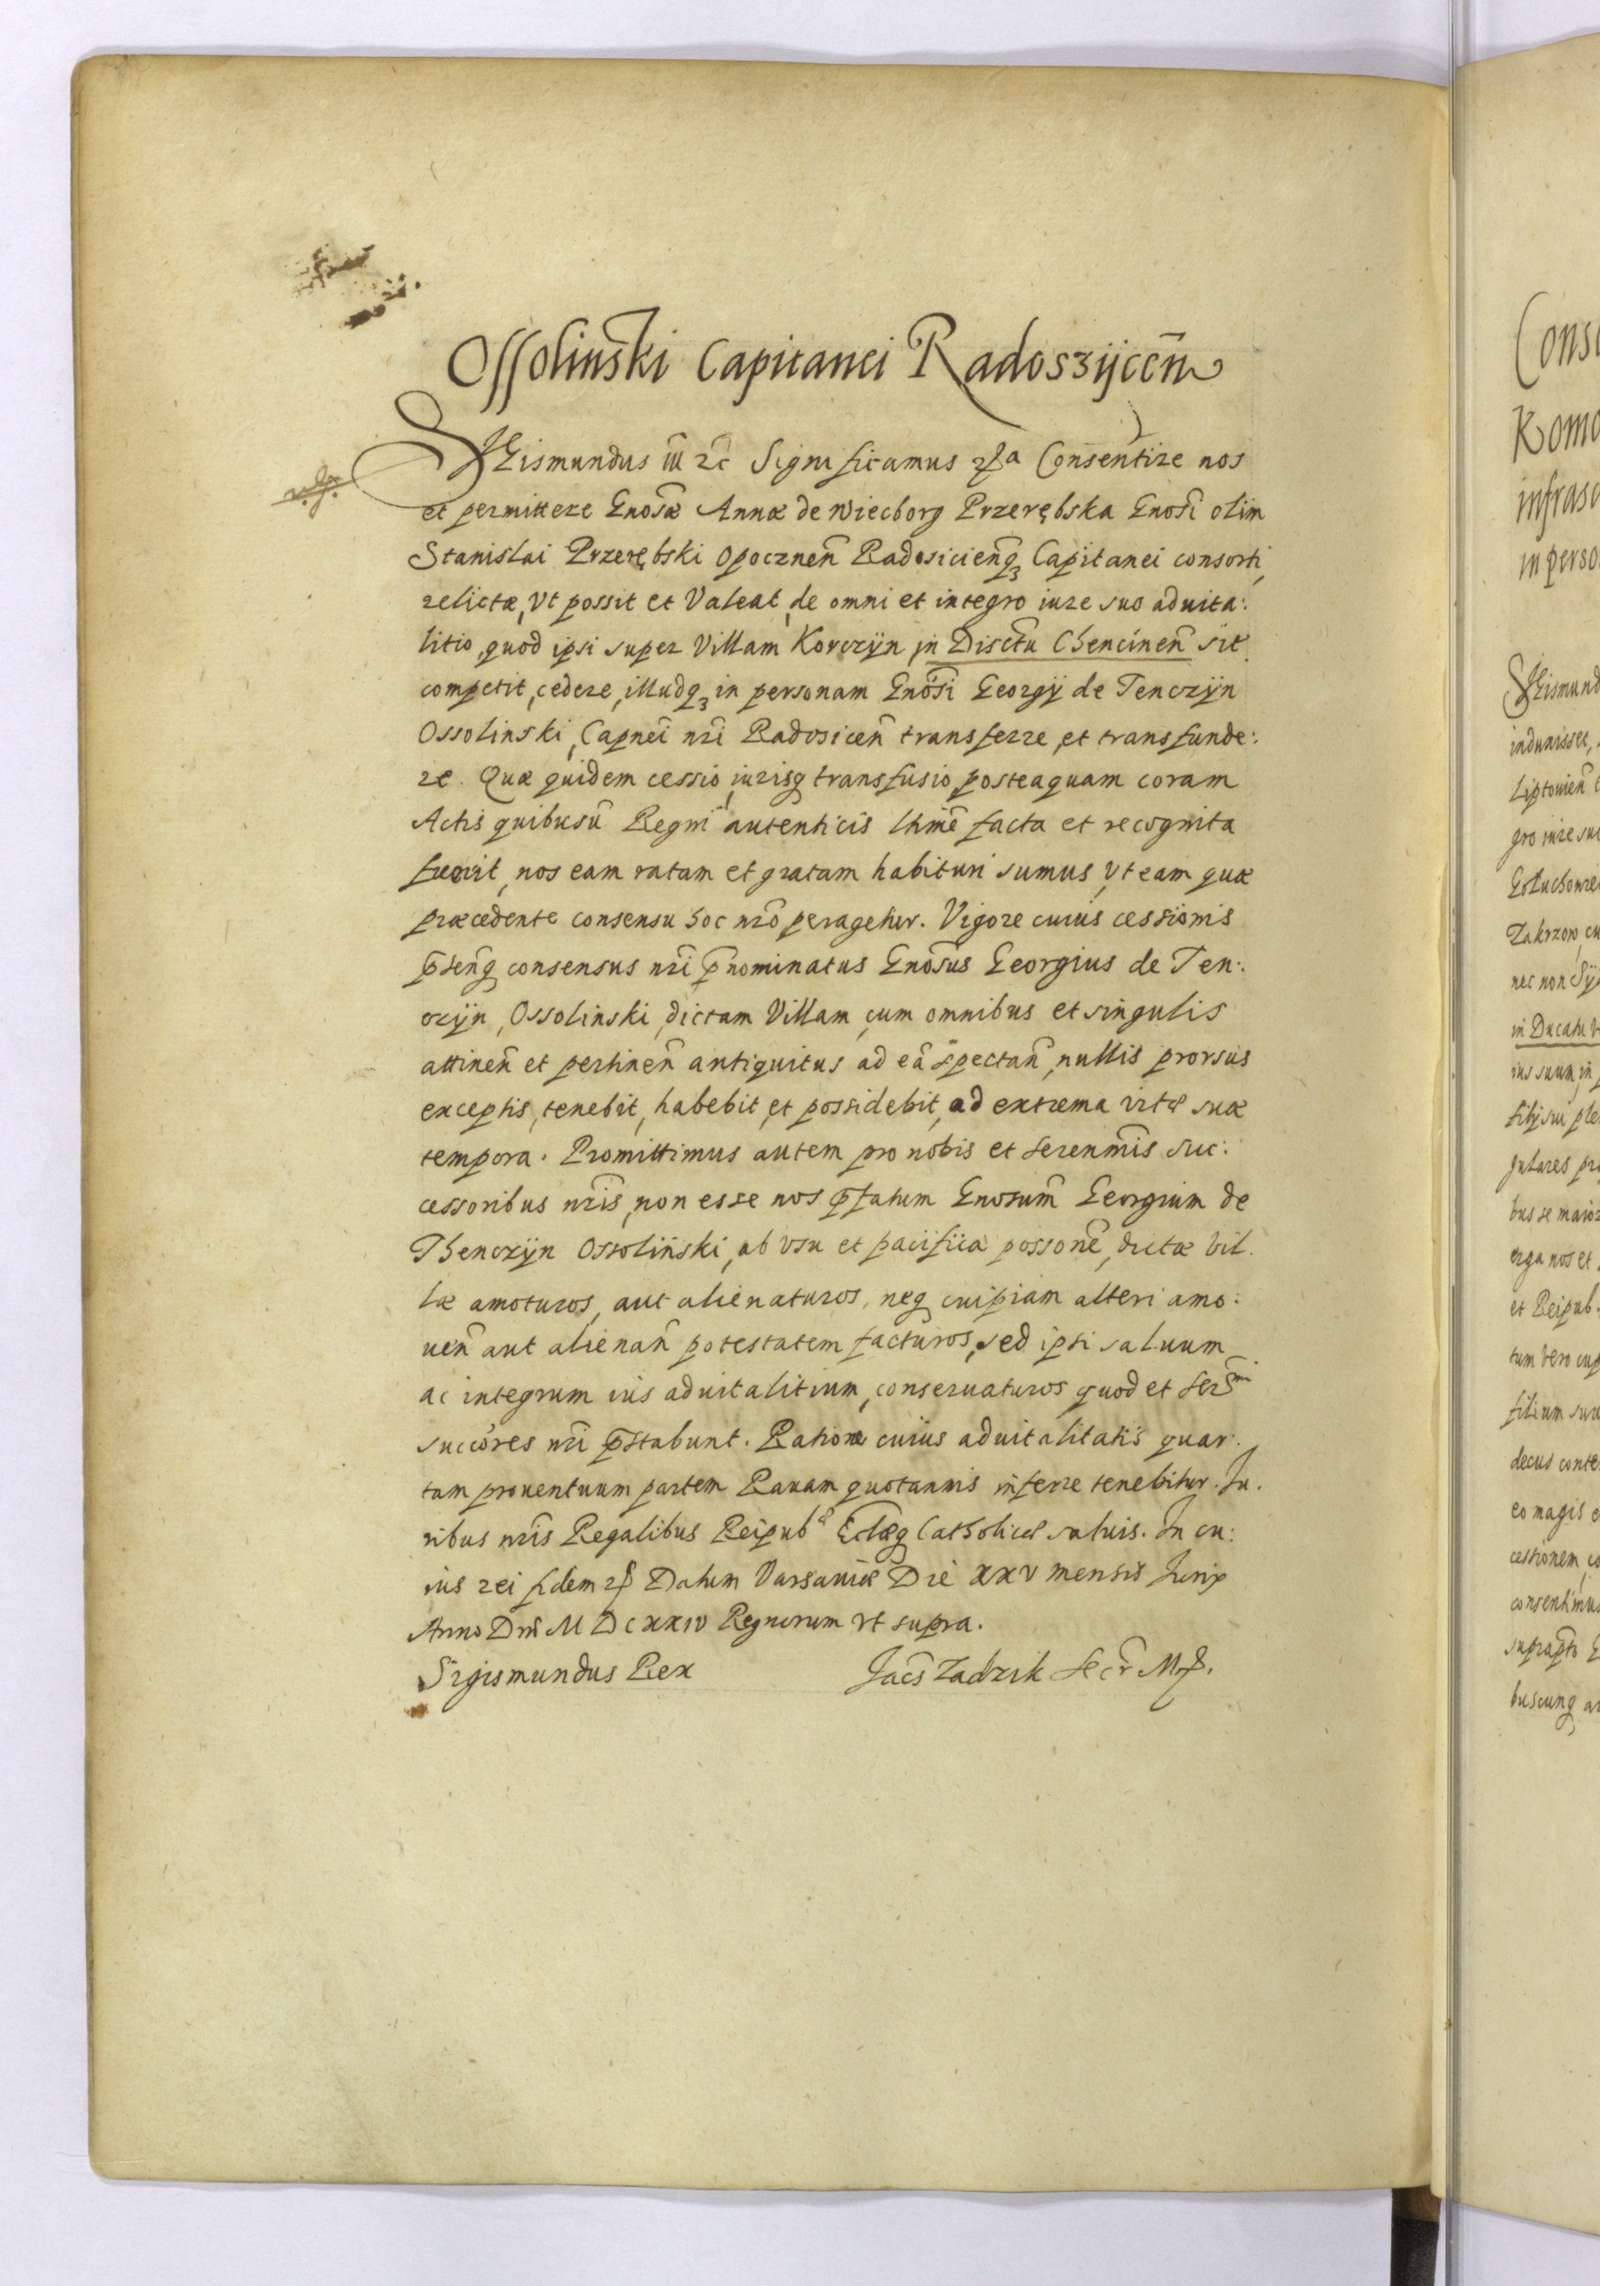 Ossolinski Capitanei Radoszÿcen̄
SGismundus iii ꝛc Significamus ꝛꝭa Consentire nos
et permittere Gnosæ Annæ de Wiecborg Przerębska Gnosi olim
Stanislai Przerębski Opocznen̄ Radosicienq₃ Capitanei consorti,
relictæ, Vt possit et Valeat, de omni et integro iure suo aduita:
litio, quod ipsi super Villam Korczÿn in Disctu Chencinen̄ sit
competit, cedere, illudq₃ in personam Gnosi Georgÿ de Tenczÿn
Ossolinski, Capnei nri Radosicen̄ transferre, et transfunde:
re. Quæ quidem cessio, iurisq transfusio, posteaquam coram
Actis quibusu Regni autenticis lhme facta et recognita
fuerit, nos eam ratam et gratam habituri sumus, vt eam quæ
præcedente consensu hoc nro peragetur. Vigore cuius cessionis
p̄senq consensus nri p̄nominatus Gnosus Georgius de Ten:
czÿn, Ossolinski, dictam Villam, cum omnibus et singulis
attinen̄ et pertinen̄ antiquitus ad eā spectan̄, nullis prorsus
exceptis, tenebit, habebit, et possidebit, ad extrema vitæ suæ
tempora. Promittimus autem pro nobis et serenmis suc:
cessoribus nris, non esse nos p̄fatum Gnosum Georgium de
Thenczÿn Ossolinski, ab vsu et pacifica possone, dictæ vil.
læ amoturos, aut alienaturos, neq cuipiam alteri amo:
uen̄ aut alienan̄ potestatem facturos, sed ipsi saluum
ac integrum ius aduitalitium, conseruaturos quod et serᵐⁱ
succores nri p̄stabunt. Ratione cuius aduitalitatis quar:
tam prouentuum partem Rauam quotannis inferre tenebitur. Ju.
ribus nris Regalibus Reipubᵉ Eclæq Catholicæ saluis. In cu:
ius rei fidem ꝛꝭ Datum Varsauiæ Die XXV mensis Junÿ
Anno Dni M DCXXIV Regnorum vt supra.
Sigismundus Rex Jacs Zadzik Secr Mꝭ.
Conse
Komo
infrasc
in perso
SGismund
Liptouien̄
gro iure suo
Zakrzow, cu
nec non Sÿ
in Ducatu
ius suum, in
bus se maior
erga nos et
et Reipub.
tum vero cup
filium suu
decus conte
eo magis
cessionem, c
consentimus
buscunq a